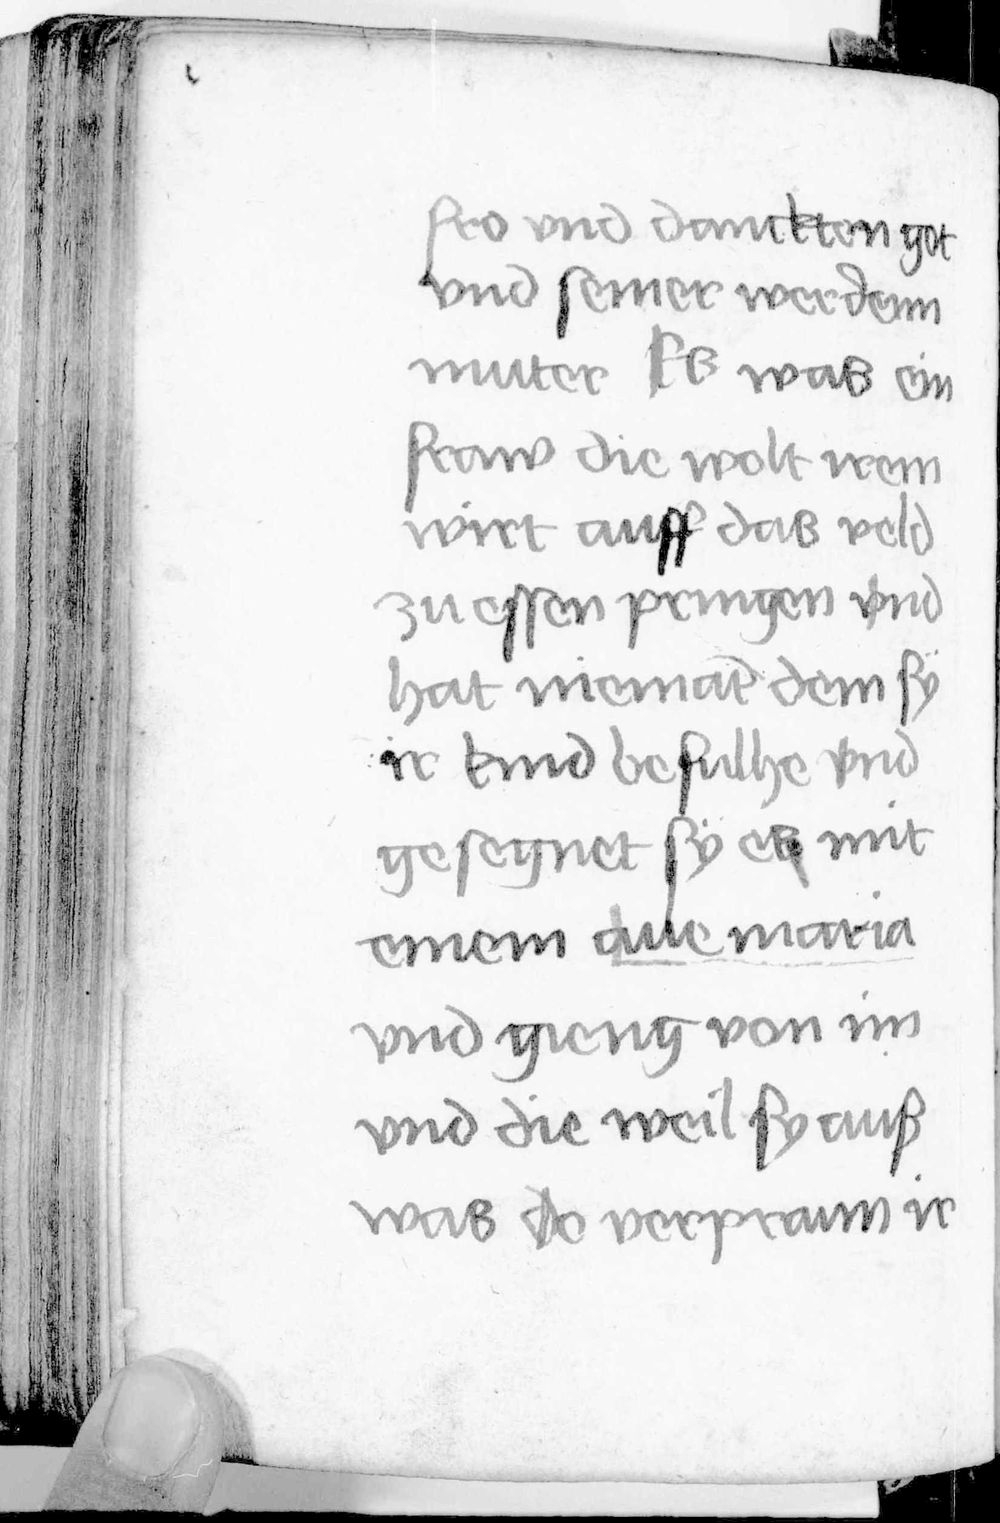 fro vnd danckten got
vnd seiner werdenn
muter Es was ein
fraw die wolt irem
wirt auff das veld
zu essen pringen vnd
hat niemat dem sÿ
ir kind befulhe vnd
gesegnet sÿ es mit
einem aue maria
vnd gieng von im
vnd die weil sy auß
was do verpraun ir